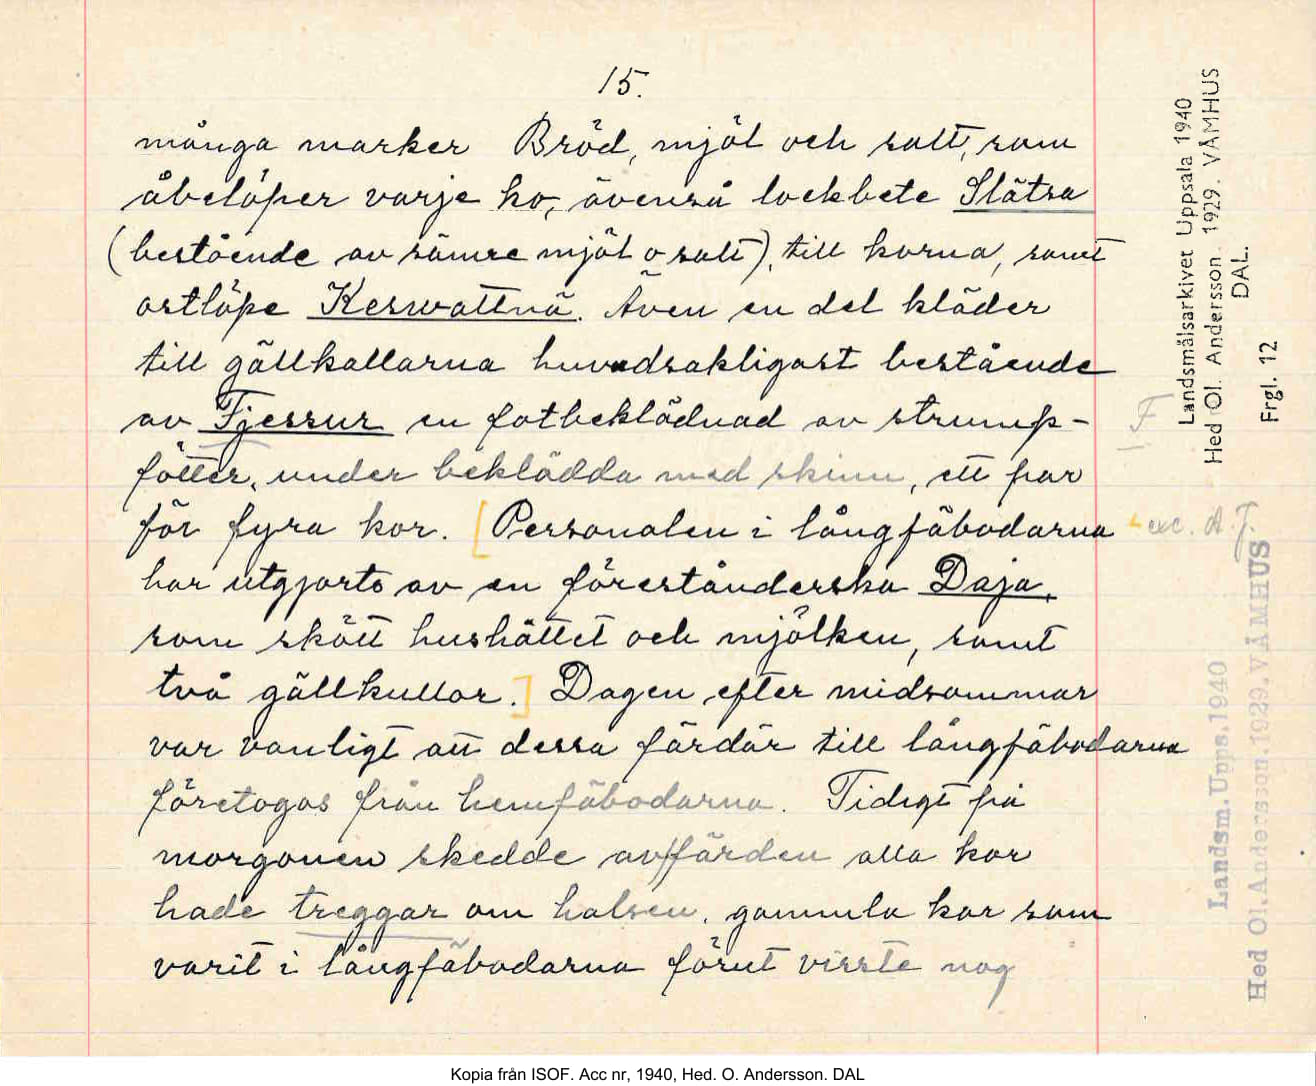 15.
många marker Bröd, mjöl och salt, som
åbelöper varje ko, ävenså lockbete Slätsa
(bestående av sämre mjöl o salt), till korna, samt
ostlöpe Keswattnä. Även en del kläder
till gällkallarna huvudsakligast bestående
av Fjessur en fotbeklädnad av strump-
fötter, under beklädda med skinn, ett par
för fyra kor. [Personalen i långfäbodarna
har utgjorts av en förestånderska Daja,
som skött hushållet och mjölken, samt
två gällkullor.] Dagen efter midsommar
var vanligt att dessa färdär till långfäbodarna
företogos från hemfäbodarna. Tidigt på
morgonen skedde avfärden alla kor
hade treggar om halsen, gammla kor som
varit i långfäbodarna förut visste nog
Landsmålsarkivet Uppsala 1940
Hed Ol. Andersson. 1929. VÅMHUS
DAL.
Frgl. 12
F
exc. A. F.
Landsm. Upps. 1940
Hed Ol. Andersson. 1929. VÅMHUS
Kopia från ISOF. Acc nr, 1940, Hed. O. Andersson. DAL